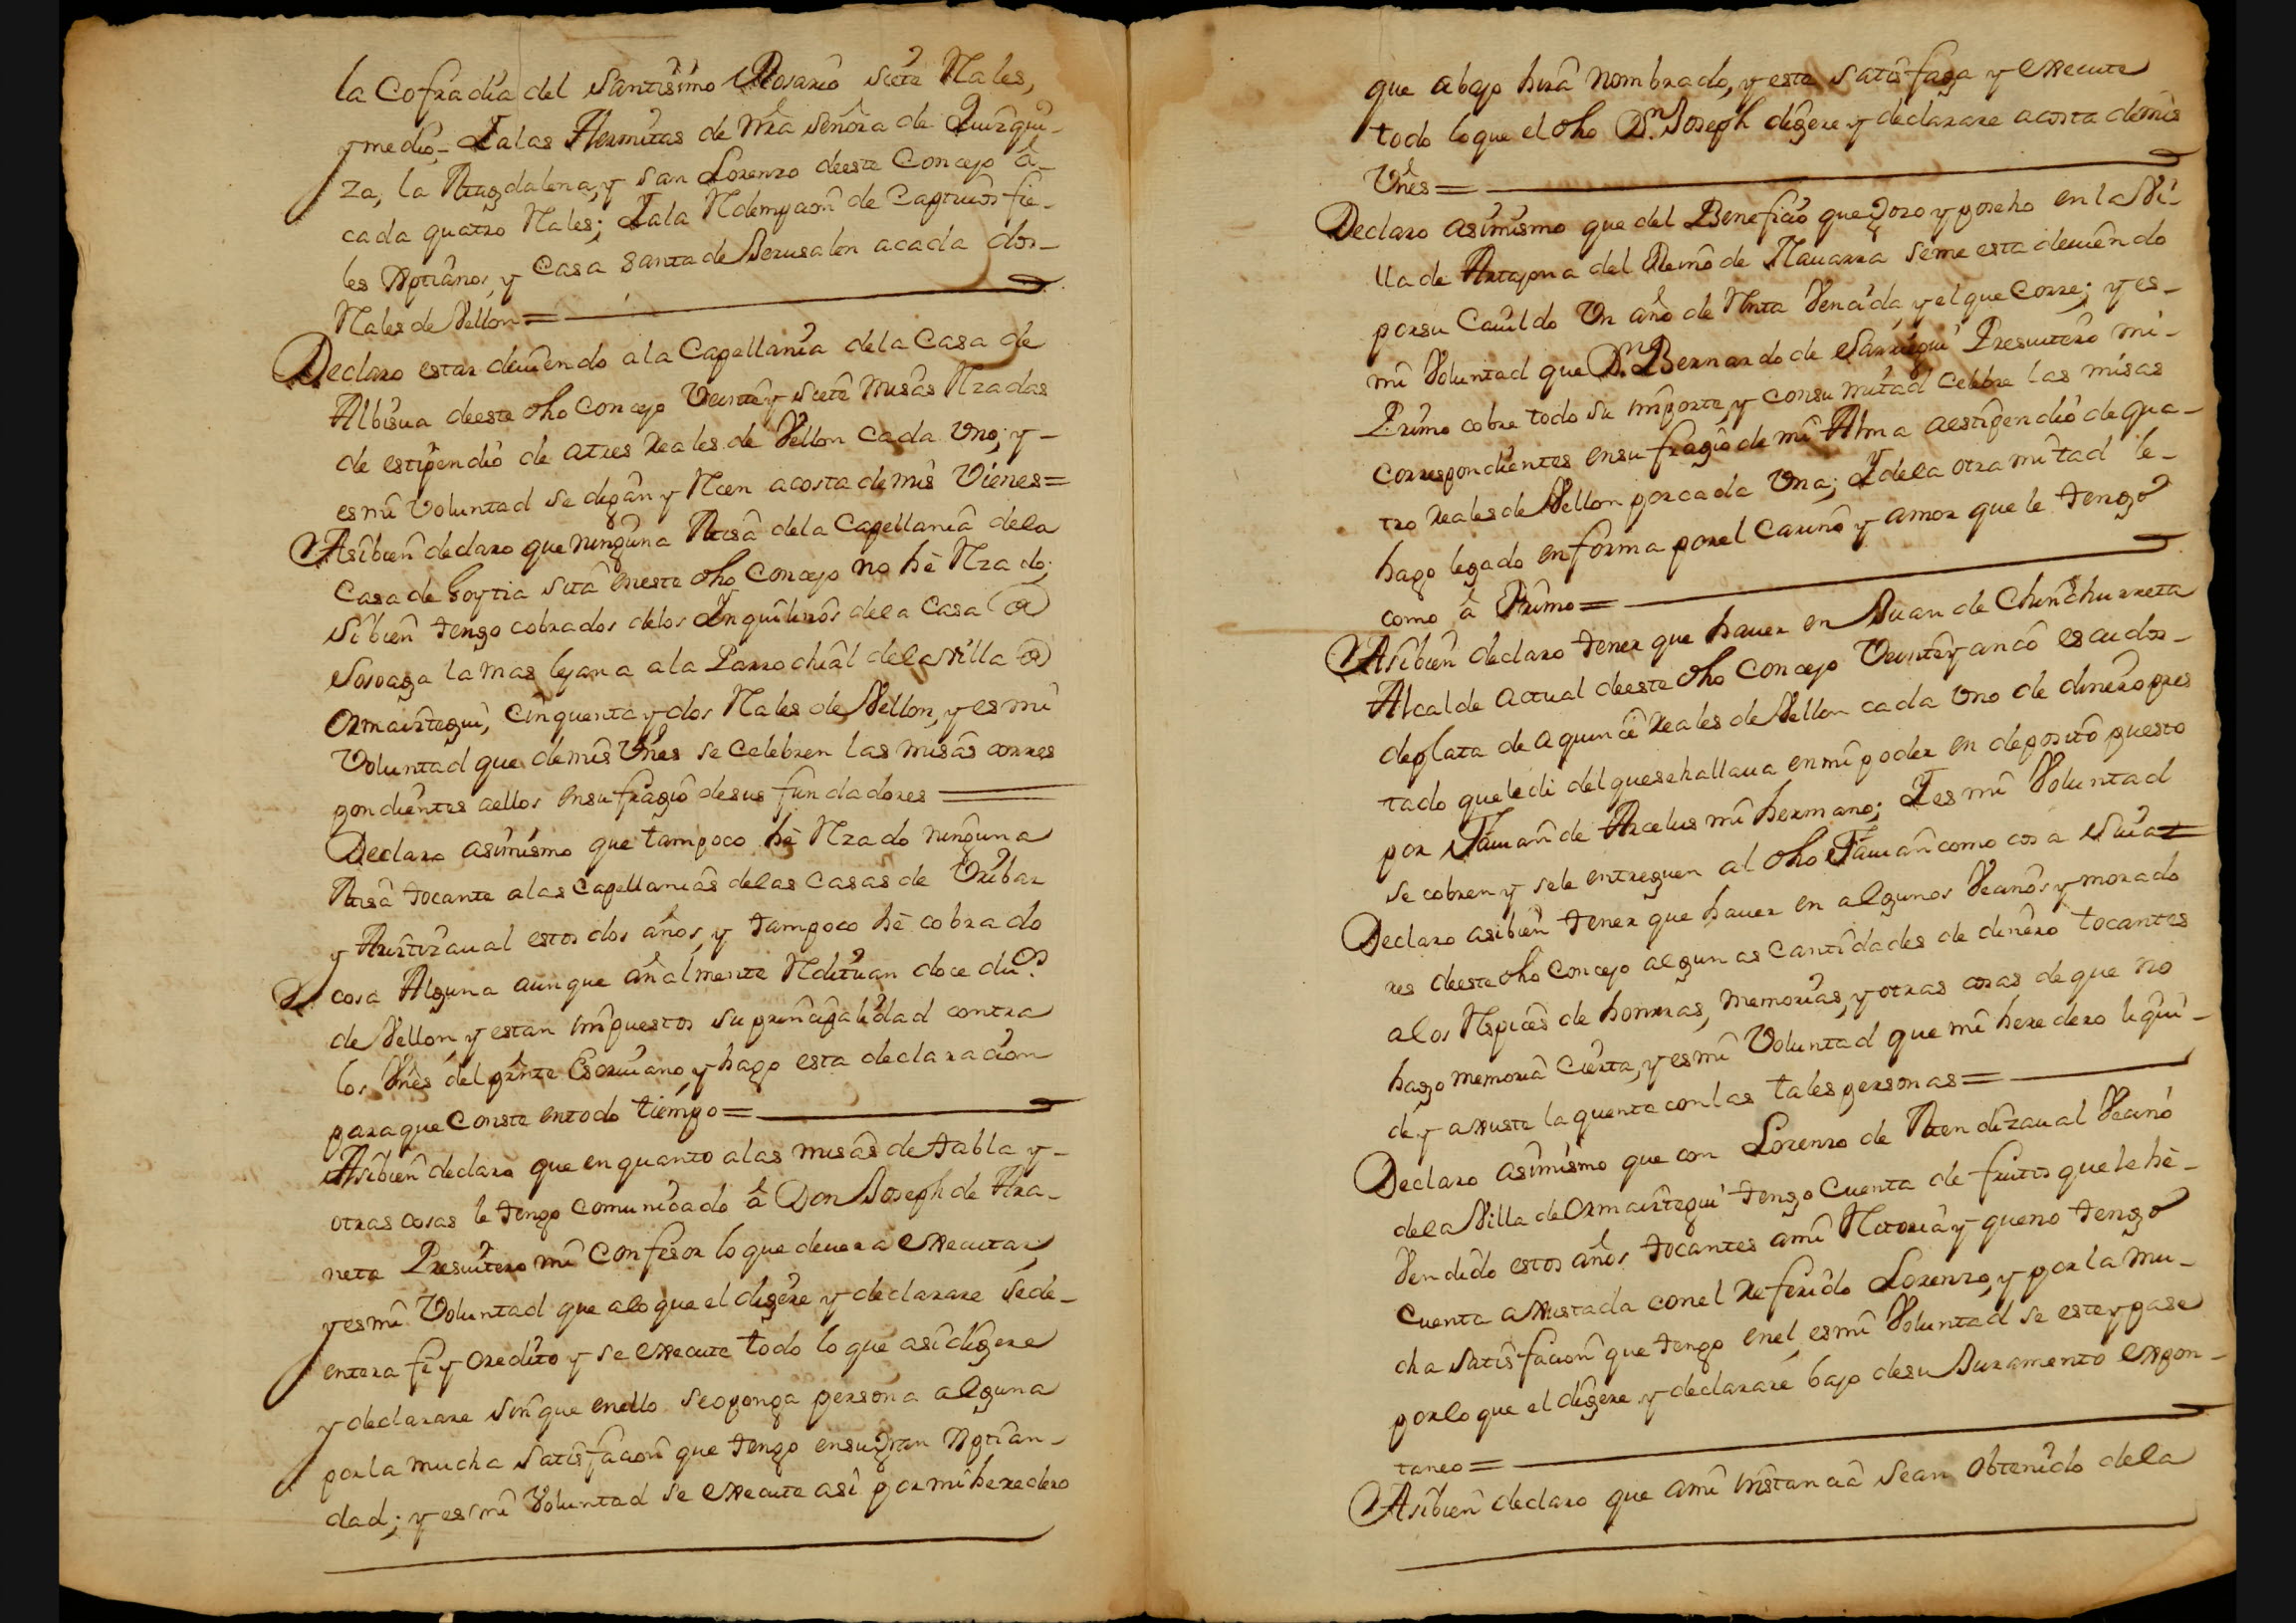 la Cofradia del Santisimo Rosario siete Rales,
y medio, I a las Hermitas de nrã Señora de Quirqui-
za, la Magdalena, y San Lorenzo de este Concejo â
cada quatro Rales; I a la Rdempcion de Captivos fie-
les Xptianos, y Casa Santa de Jerusalen a cada dos-
Rales de Vellon=
Declaro estar deviendo a la Capellania de la Casa de
Albisua de este dho Concejo Veinte y siete misas Rzadas
de estipendio de a tres reales de Vellon cada Uno; y-
es mi Voluntad se digan y Rcen a costa de mis Vienes=
Asibien declaro que ninguna Misa de la Capellania de la
Casa de Goytia sita en este dho Concejo no hê Rzado;
Si bien tengo cobrados de los Inquilinos de la Casa de
Soroaga la mas lejana a la Parrochial de la Villa de
Ormaiztegui, cinquenta y dos Rales de Vellon, y es mi
Voluntad que de mis Vnes se celebren las misas corres
pondientes a ellos en sufragio de sus fundadores
Declaro asimismo que tampoco hê Rzado ninguna
Misa tocante a las Capellanias de las Casas de Oribar
y Aristizaval estos dos años, y tampoco hê cobrado
cosa Alguna aunque añalmente Rditúan doce dus
de Vellon, y estan impuestos su principalidad contra
los Vnes del prnte Escrivano, y hago esta declaracion
para que Conste en todo tiempo=
Asibien declaro que en quanto a las misas de tabla y-
otras cosas le tengo comunicado â Don Joseph de Ara-
neta Presvitero mi Confesor lo que devera executar,
y es mi Voluntad que a lo que el digere y declarare se de-
entera fê y credito y se execute todo lo que asi digere
y declarare sin que en ello se oponga persona alguna
por la mucha satisfacion que tengo en su gran Xptian-
dad; y es mi Voluntad se execute asi por mi heredero
que abajo hirâ nombrado, y este satisfaga y execute
todo lo que el dho Dn. Joseph digere y declarare a costa de mis
Vnes=
Declaro asimismo que del Beneficio que gozo y poseho en la Vi-
lla de Artajona del Reino de Navarra se me esta deviendo
por su Cavildo Un año de Rnta Vencida, y el que Corre; y es-
mi Voluntad que Dn. Bernardo de Sarriegui Presvitero mi-
Primo cobre todo su importe, y con su mitad celebre las misas
correspondientes en sufragio de mi Alma a estipendio de qua-
tro reales de Vellon por cada Una; I de la otra mitad le-
hago legado en forma por el Cariño y amor que le tengo
como â Primo=
Asibien declaro tener que haver en Juan de Chinchurreta
Alcalde actual de este dho Concejo Veinte y cinco escudos-
de plata de a quince reales de Vellon cada Uno de dinero pres
tado que le di del que se hallava en mi poder en deposito puesto
por Damian de Arcelus mi hermano; I es mi Voluntad
se cobren y se le entreguen al dho Damian como cosa Suia=
Declaro asibien tener que haver en algunos Vecinos y morado
res de este dho Concejo algunas Cantidades de dinero tocantes
a los Rspices de honrras, memorias, y otras cosas de que no
hago memoria Cierta, y es mi Voluntad que mi heredero liqui-
de y axuste la quenta con las tales personas=
Declaro asimismo que con Lorenzo de Mendizaval Vecino
de la Villa de Ormaiztegui tengo Cuenta de frutos que le hê-
Vendido estos años, tocantes a mi Rtoria y que no tengo
Cuenta axustada con el referido Lorenzo, y por la mu-
cha satisfacion que tengo en el, es mi Voluntad se este y pase
por lo que el digere y declarare bajo de su Juramento expon-
taneo=
Asibien declaro que a mi instancia se an obtenido de la